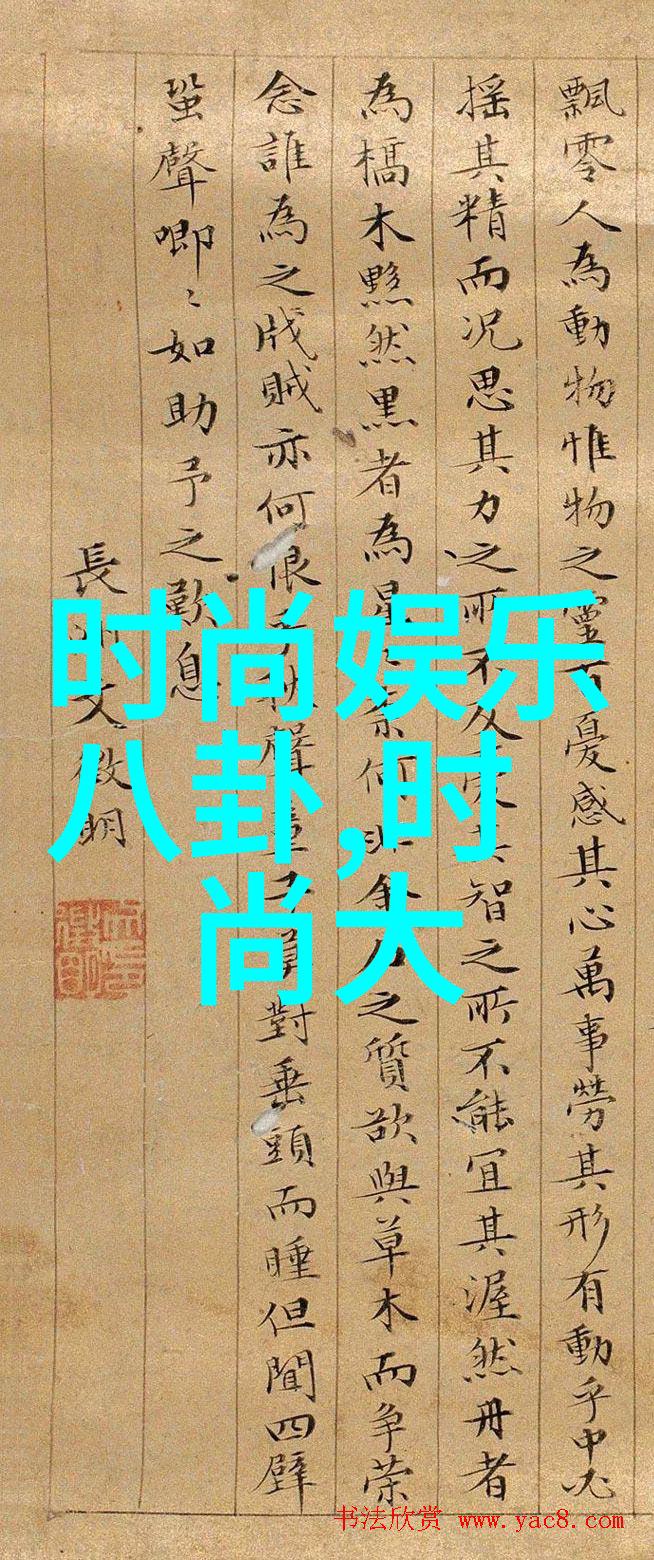 飄零人為動物惟物之靈百憂感其心萬事勞其形有動乎中必
搖其精而况思其力之所不及憂其智之所不能宜其渥然丹者
為槁木黟然黑者為星奈何非金石之質欲與草木而爭荣
念誰為之戕賊亦何恨乎秋聲童子莫對垂頭而睡但聞四壁
蛩聲唧〻如助予之歎息
長洲文徵明
时尚娱乐
八卦,时
尚大
书法欣赏 www.yac8.com